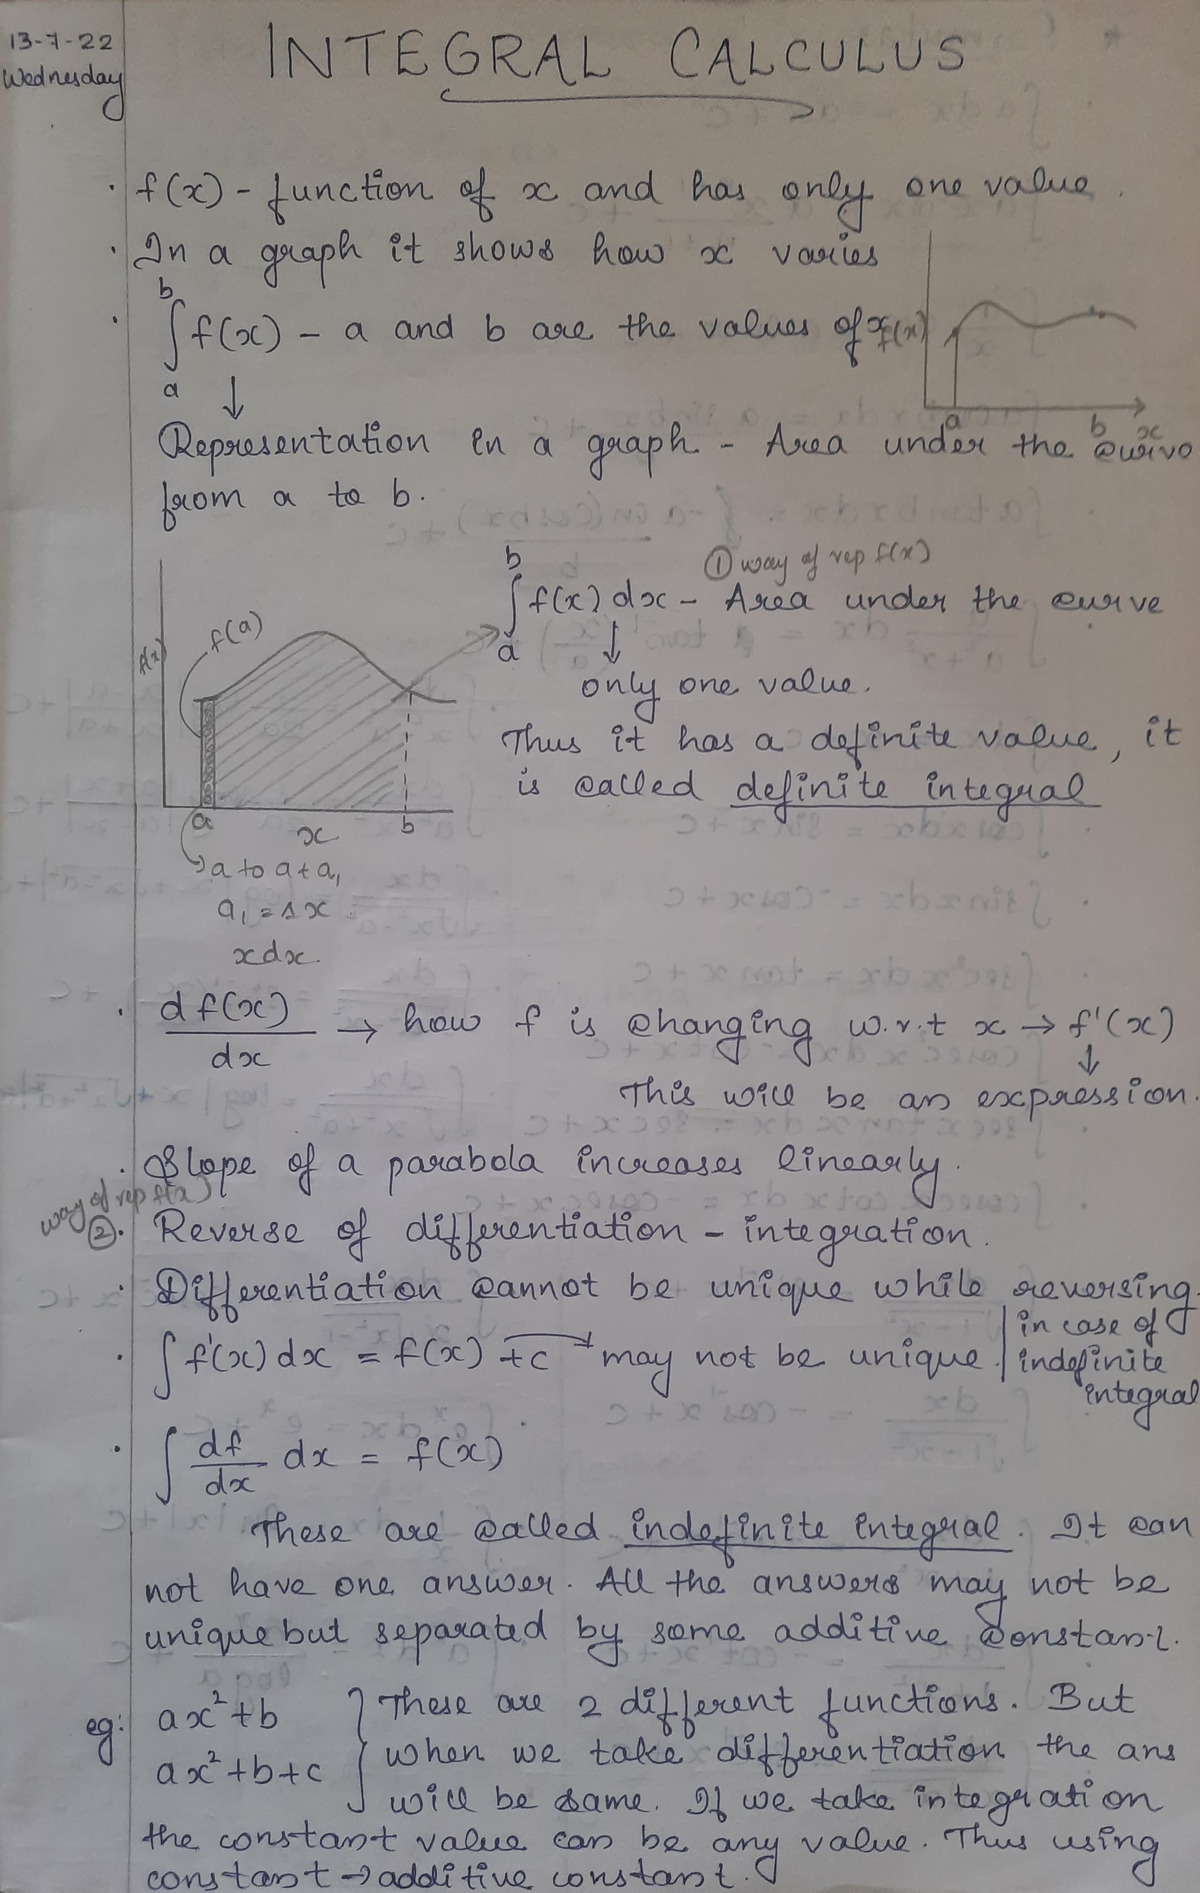 13-7-22
Wednesday
INTEGRAL CALCULUS
· f(x) - function of x and has only one value.
· In a graph it shows how x varies
· ∫ₐᵇ f(x) - a and b are the values of x
f(x)
a b x
↓
Representation in a graph - Area under the curve
from a to b.
① way of rep f(x)
∫ₐᵇ f(x) dx - Area under the curve
↓
only one value.
Thus it has a definite value, it
is called definite integral
f(a)
f(x)
a x b
→ a to a + a₁
a₁ = Δx
xdx.
· d f(x)/dx → how f is changing w.r.t x → f'(x)
↓
This will be an expression.
· Slope of a parabola increases linearly.
way of rep f(x)
②. Reverse of differentiation - integration.
· Differentiation cannot be unique while reversing.
· ∫ f'(x) dx = f(x) + c → may not be unique. | in case of
indefinite
integral
· ∫ df/dx dx = f(x)
These are called indefinite integral. It can
not have one answer. All the answers may not be
unique but separated by some additive constant.
eg: ax² + b } These are 2 different functions. But
ax² + b + c when we take differentiation the ans
will be same. If we take integration
the constant value can be any value. Thus using
constant → additive constant.